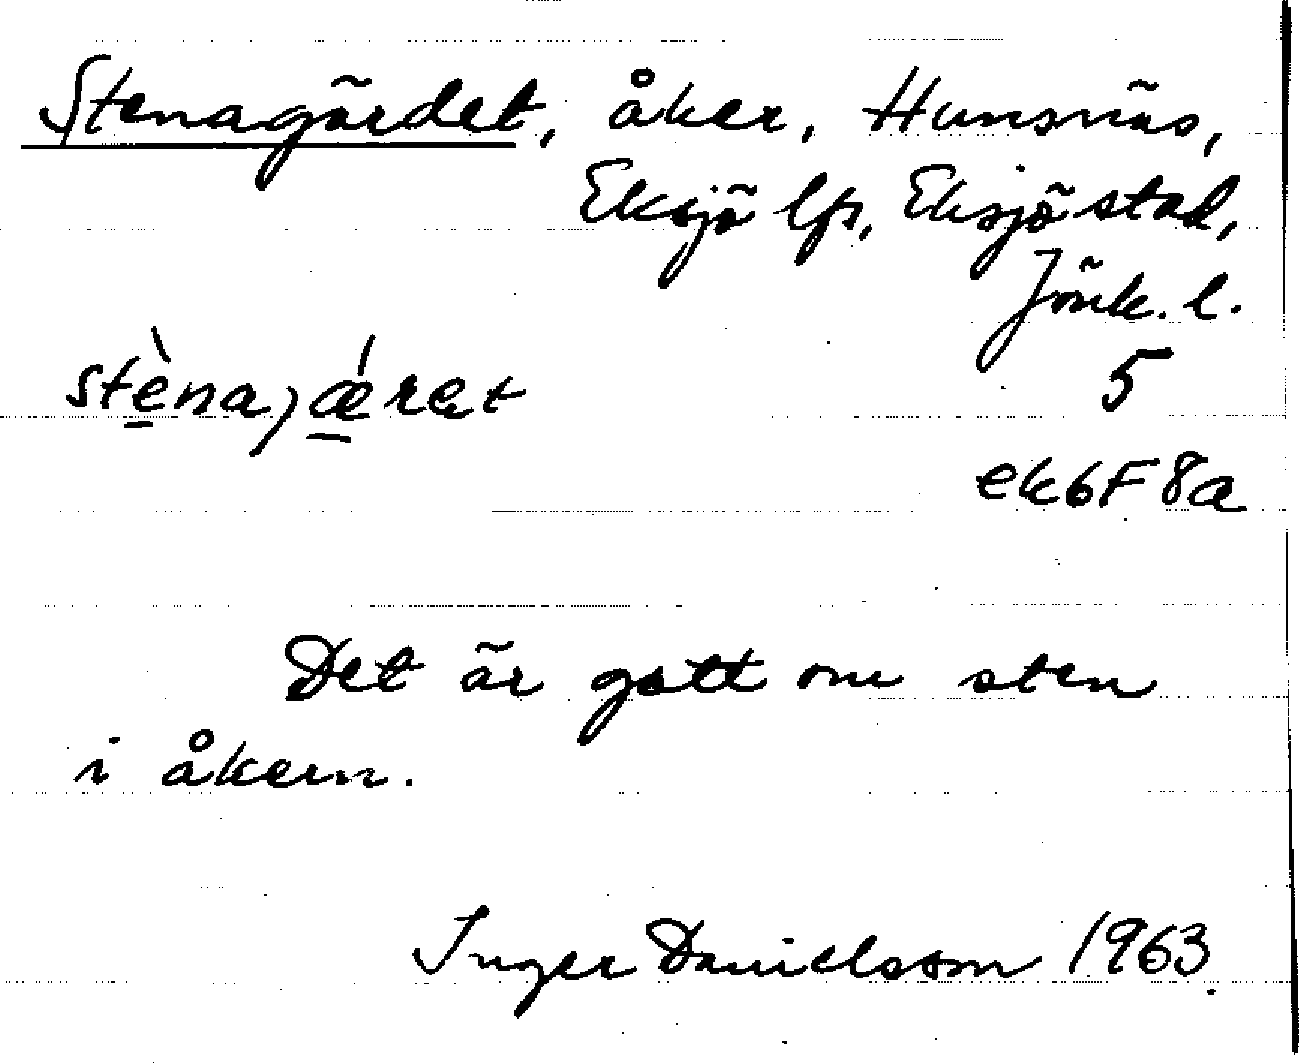 Stenagärdet, åker, Hunsnäs,
Eksjö lfs, Eksjö stad,
Jönk. l.
stèna,jǽret
5
ek6F8a
Det är gott om sten
i åkern.
Inger Danielsson 1963